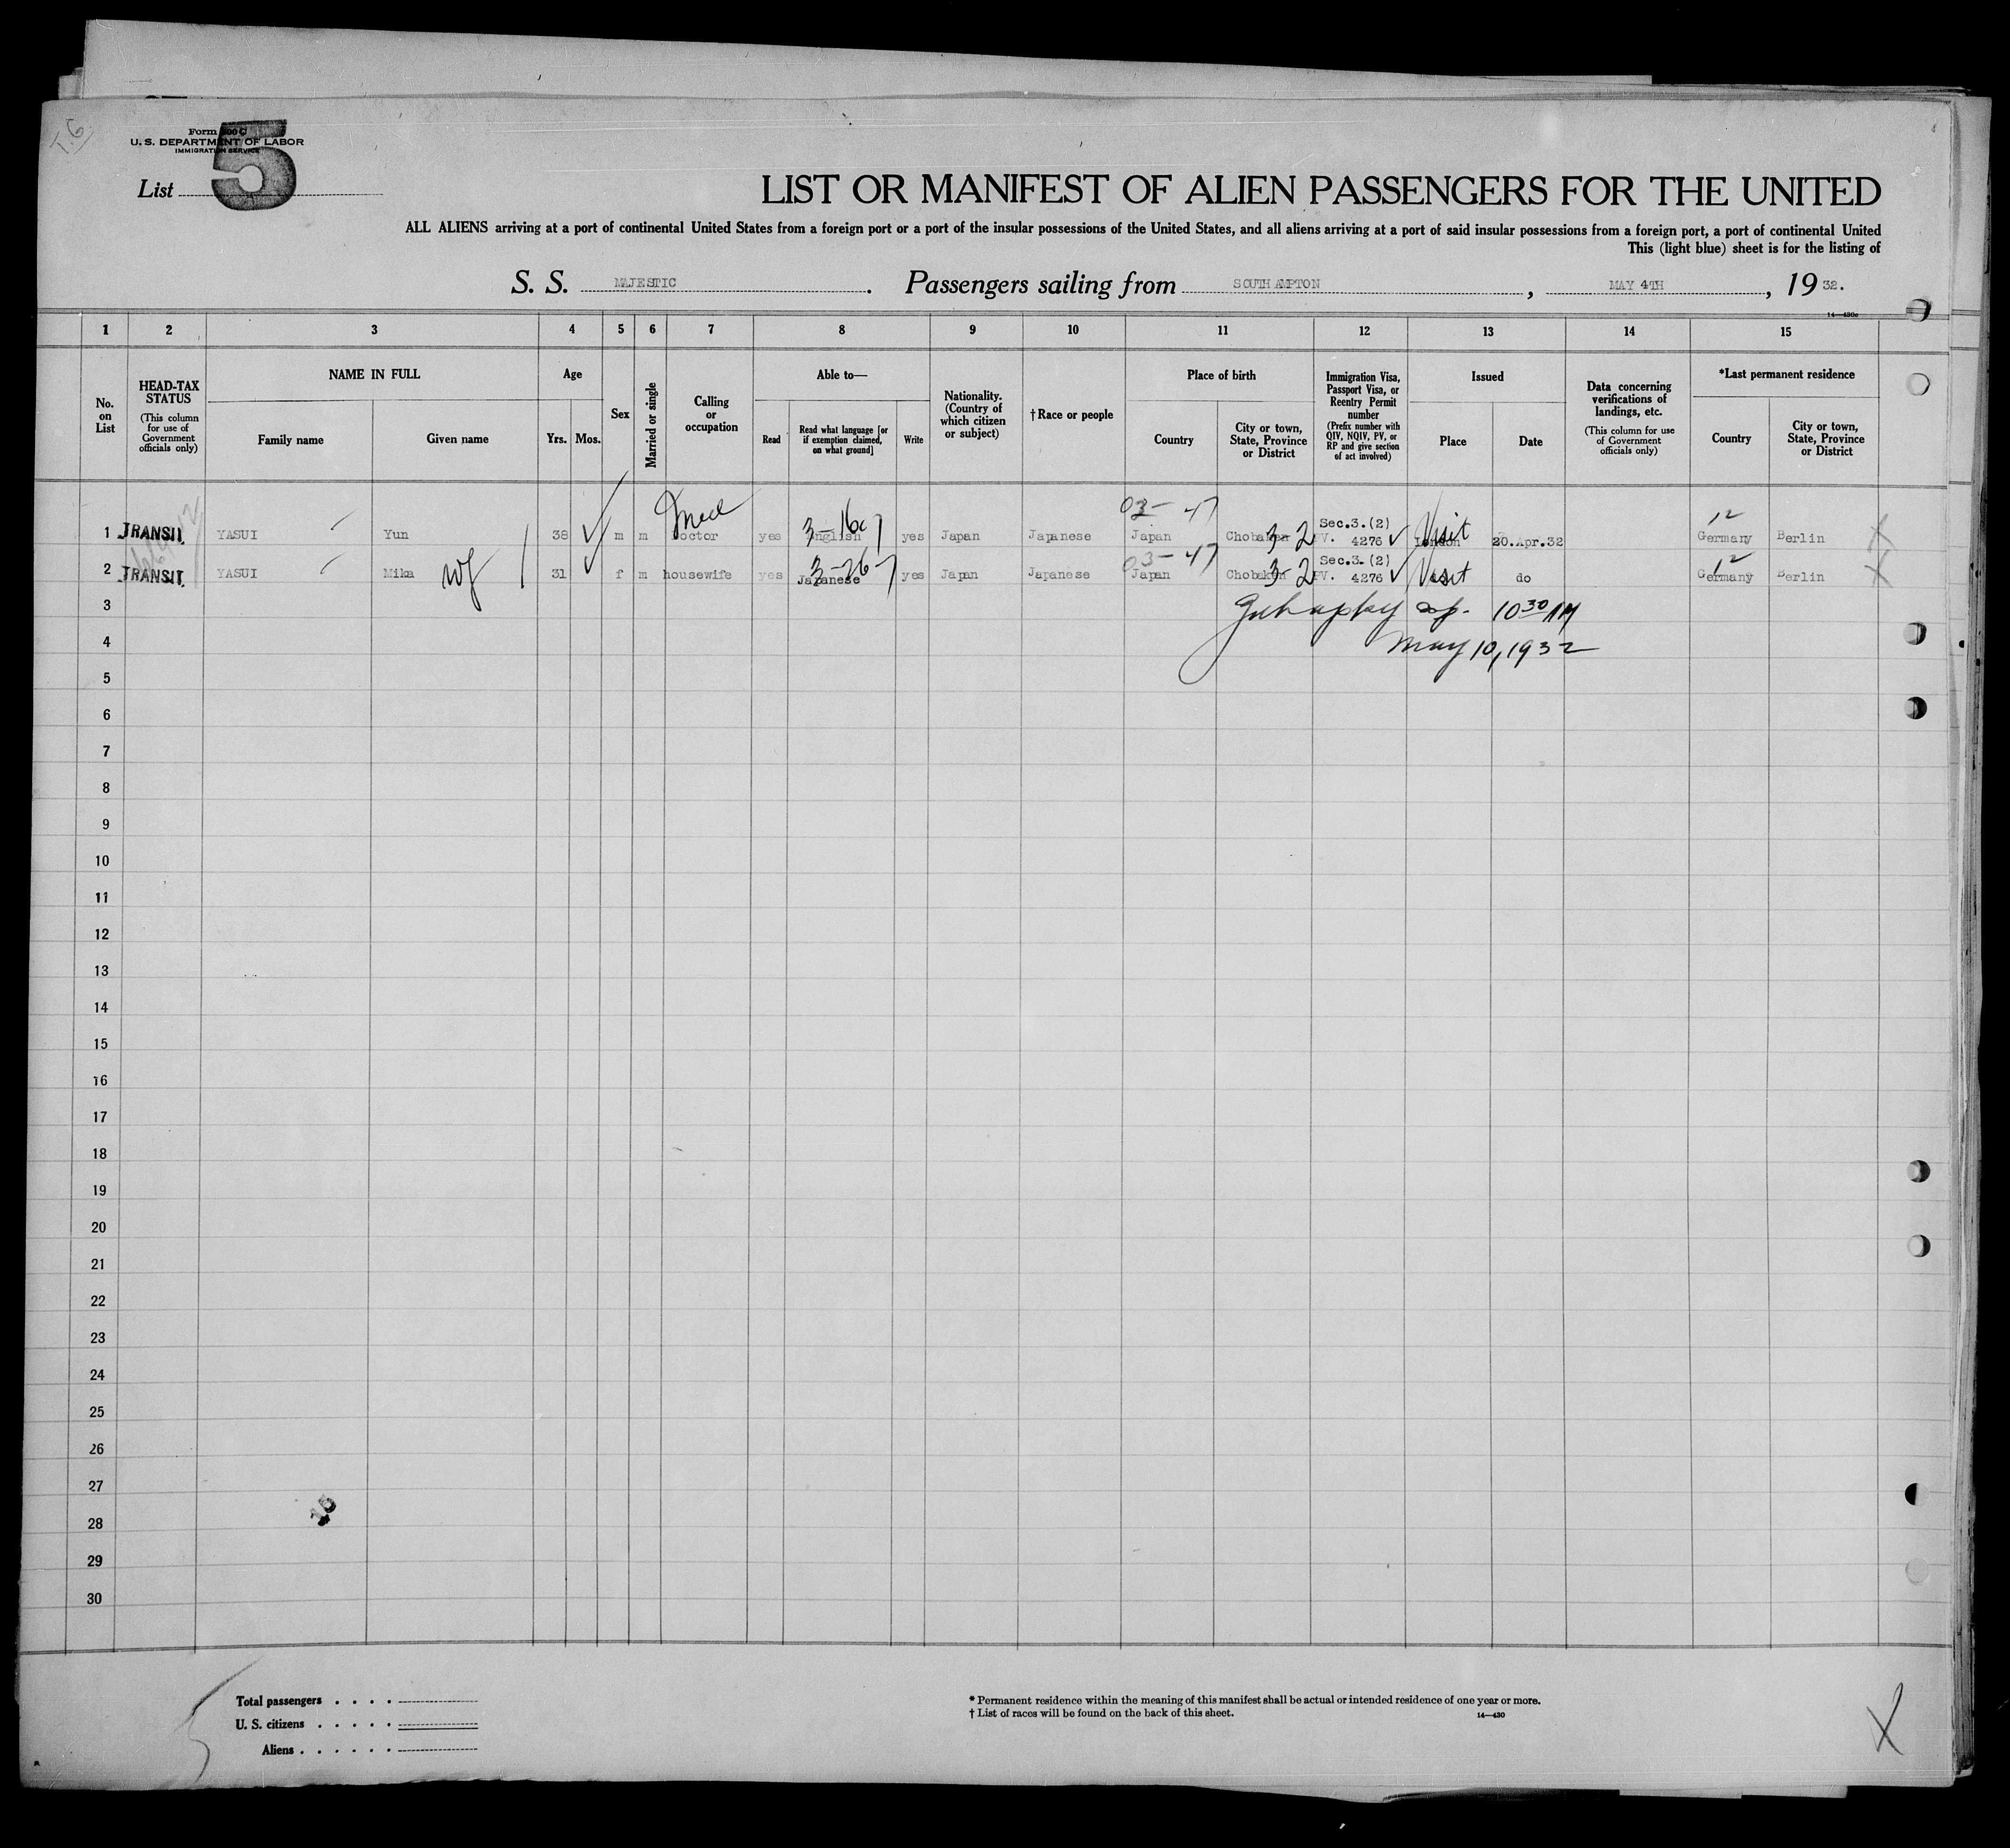 Form 500 C
U. S. DEPARTMENT OF LABOR
IMMIGRATION SERVICE
List 5
LIST OR MANIFEST OF ALIEN PASSENGERS FOR THE UNITED
ALL ALIENS arriving at a port of continental United States from a foreign port or a port of the insular possessions of the United States, and all aliens arriving at a port of said insular possessions from a foreign port, a port of continental United
This (light blue) sheet is for the listing of
S. S. MAJESTIC. Passengers sailing from SOUTHAMPTON, MAY 4TH, 1932.
14—430c
1 2 3 4 5 6 7 8 9 10 11 12 13 14 15
No. on List
HEAD-TAX STATUS (This column for use of Government officials only)
NAME IN FULL
Family name
Given name
Age
Yrs. Mos.
Sex
Married or single
Calling or occupation
Able to—
Read
Read what language [or if exemption claimed, on what ground]
Write
Nationality. (Country of which citizen or subject)
† Race or people
Place of birth
Country
City or town, State, Province or District
Immigration Visa, Passport Visa, or Reentry Permit number (Prefix number with QIV, NQIV, PV, or RP and give section of act involved)
Issued
Place
Date
Data concerning verifications of landings, etc. (This column for use of Government officials only)
*Last permanent residence
Country
City or town, State, Province or District
Med 03- 47 Sec.3.(2) 12
1 TRANSIT YASUI Yun 38 m m Doctor yes English 3-16 yes Japan Japanese Japan 3-2 PV. 4276 Visit London 20.Apr.32 Germany Berlin
03- 47 Sec.3.(2) 12
2 TRANSIT YASUI Mika wf 31 f m housewife yes Japanese 3-26 yes Japan Japanese Japan 3-2 PV. 4276 Visit do Germany Berlin
3 10 30 AM
4 May 10, 1932
5
6
7
8
9
10
11
12
13
14
15
16
17
18
19
20
21
22
23
24
25
26
27
28
29
30
Total passengers . . . .
U. S. citizens . . . . .
Aliens . . . . . .
* Permanent residence within the meaning of this manifest shall be actual or intended residence of one year or more.
† List of races will be found on the back of this sheet.
14—430